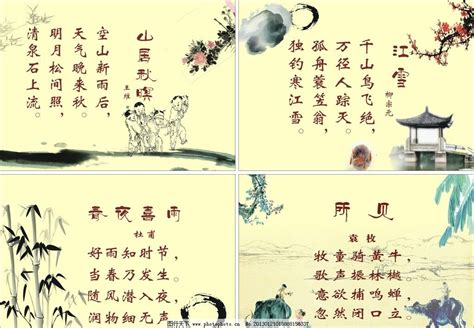 山居秋暝
王维
空山新雨后，
天气晚来秋。
明月松间照，
清泉石上流。
江雪
柳宗元
千山鸟飞绝，
万径人踪灭。
孤舟蓑笠翁，
独钓寒江雪。
春夜喜雨
杜甫
好雨知时节，
当春乃发生。
随风潜入夜，
润物细无声。
所见
袁枚
牧童骑黄牛，
歌声振林樾。
意欲捕鸣蝉，
忽然闭口立。